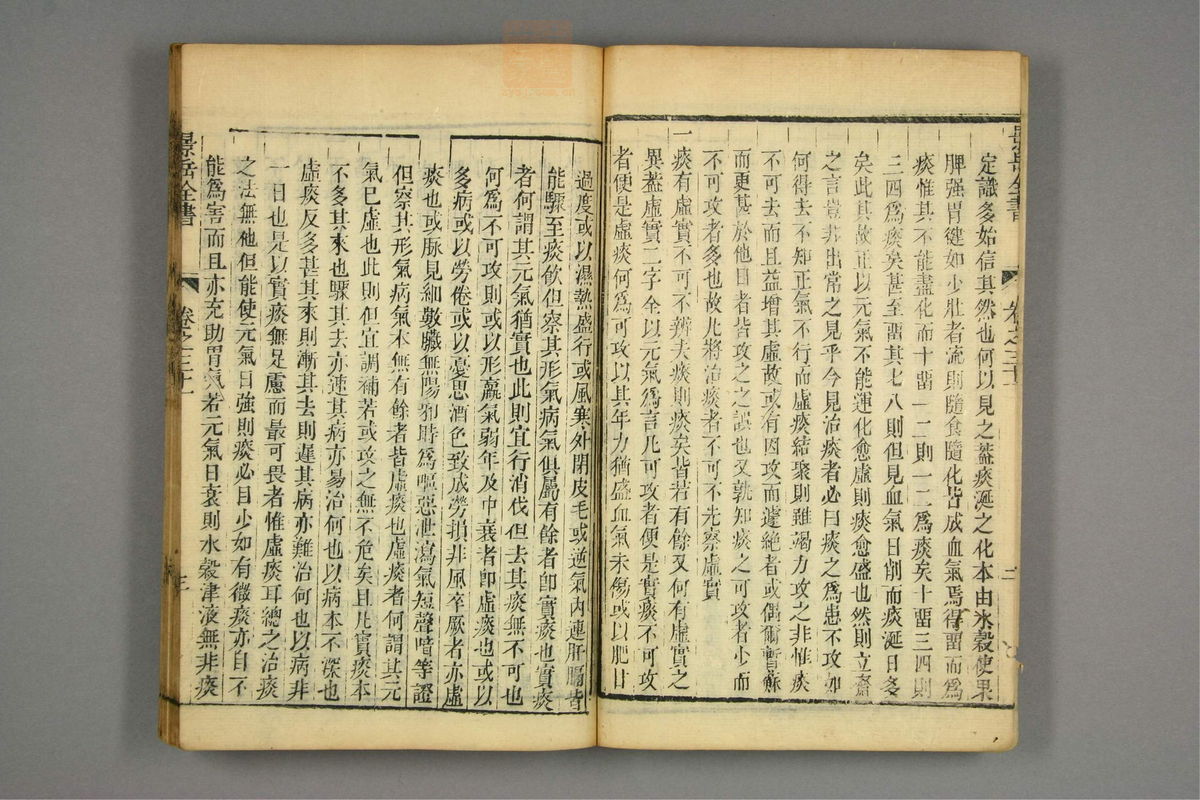 景岳全書
卷之三十一
二
定識多始信其然也何以見之蓋痰涎之化本由水穀使果
脾强胃健如少壯者流則隨食隨化皆成血氣焉得畱而爲
痰惟其不能盡化而十畱一二則一二爲痰矣十畱三四則
三四爲痰矣甚至畱其七八則但見血氣日削而痰涎日多
矣此其故正以元氣不能運化愈虛則痰愈盛也然則立齋
之言豈非出常之見乎今見治痰者必曰痰之爲患不攻如
何得去不知正氣不行而虛痰結聚則雖竭力攻之非惟痰
不可去而且益增其虛故或有因攻而遽絶者或偶爾暫蘇
而更甚於他日者皆攻之之誤也又孰知痰之可攻者少而
不可攻者多也故凡將治痰者不可不先察虛實
一痰有虛實不可不辨夫痰則痰矣皆若有餘又何有虛實之
異蓋虛實二字全以元氣爲言凡可攻者便是實痰不可攻
者便是虛痰何爲可攻以其年力猶盛血氣未傷或以肥甘
過度或以濕熱盛行或風寒外閉皮毛或逆氣内連肝膈皆
能驟至痰飲但察其形氣病氣俱屬有餘者卽實痰也實痰
者何謂其元氣猶實也此則宜行消伐但去其痰無不可也
何爲不可攻則或以形羸氣弱年及中衰者卽虛痰也或以
多病或以勞倦或以憂思酒色致成勞損非風卒厥者亦虛
痰也或脉見細數臟無陽邪時爲嘔惡泄瀉氣短聲喑等證
但察其形氣病氣本無有餘者皆虛痰也虛痰者何謂其元
氣已虛也此則但宜調補若或攻之無不危矣且凡實痰本
不多其來也驟其去亦速其病亦易治何也以病本不深也
虛痰反多甚其來則漸其去則遲其病亦難治何也以病非
一日也是以實痰無足慮而最可畏者惟虛痰耳總之治痰
之法無他但能使元氣日強則痰必日少如有微痰亦自不
能爲害而且亦充助胃氣若元氣日衰則水穀津液無非痰
景岳全書
卷之三十一
三